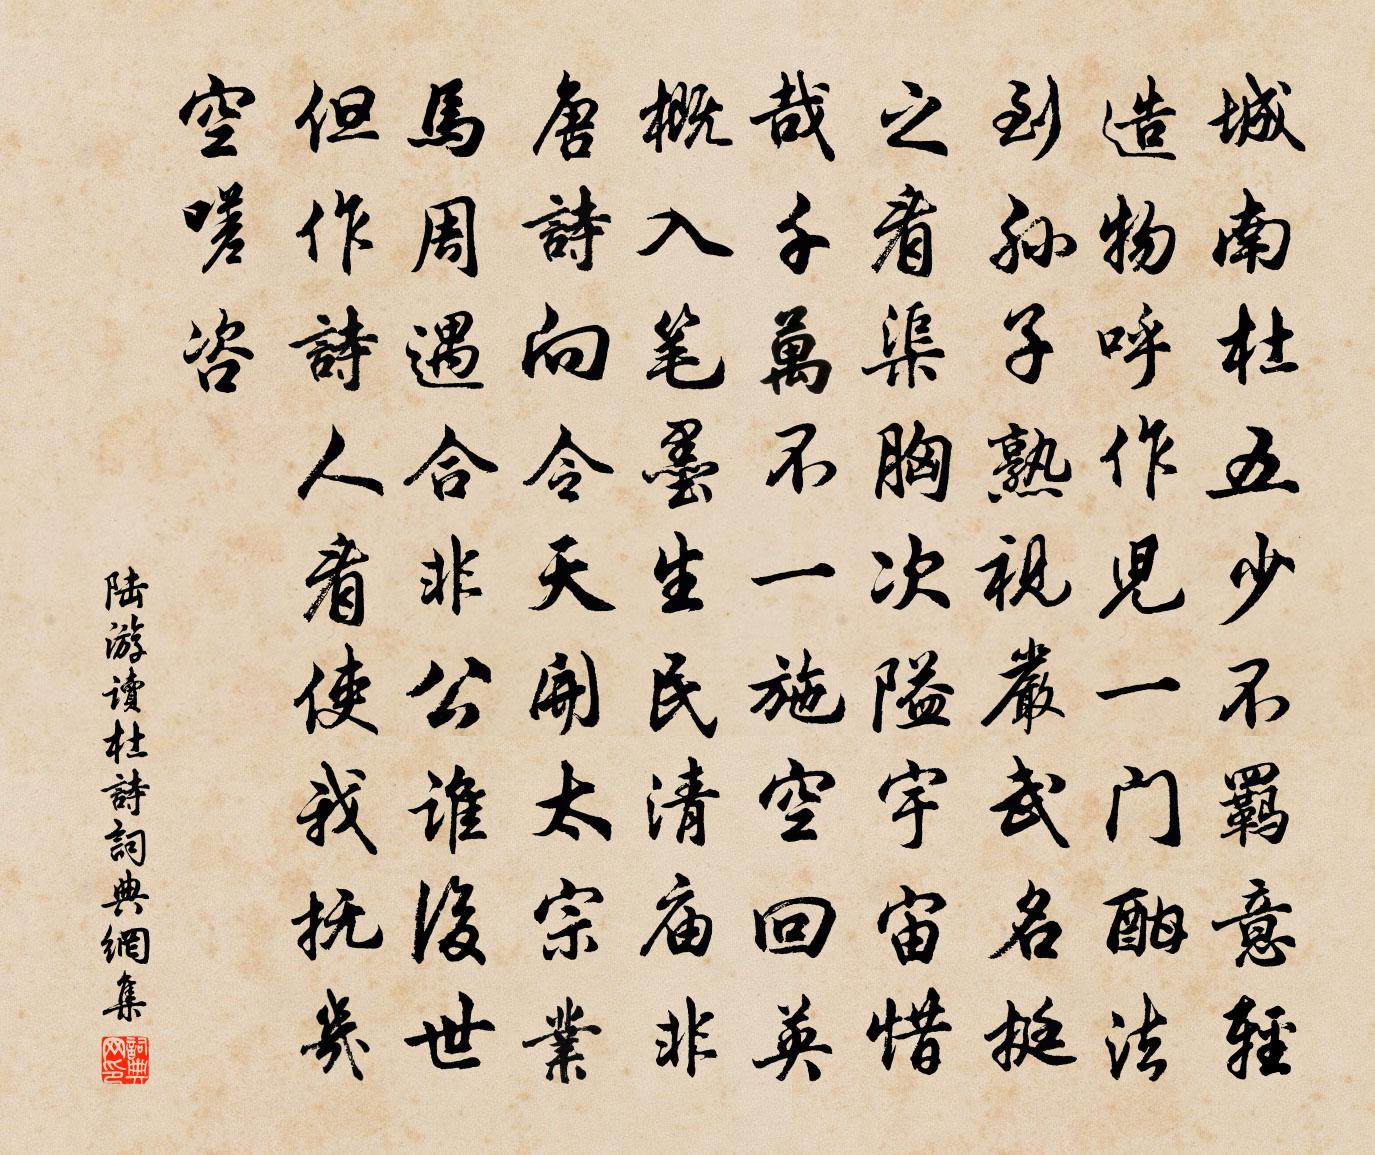 城南杜五少不羈意輕
造物呼作児一门酣法
到孙子熟視嚴武名挺
之看渠胸次隘宇宙惜
哉千萬不一施空回英
概入笔墨生民清庙非
唐詩向令天開太宗業
馬周遇合非公谁後世
但作詩人看使我抚幾
空嗟咨
陆游读杜詩詞典網集
詞典网印